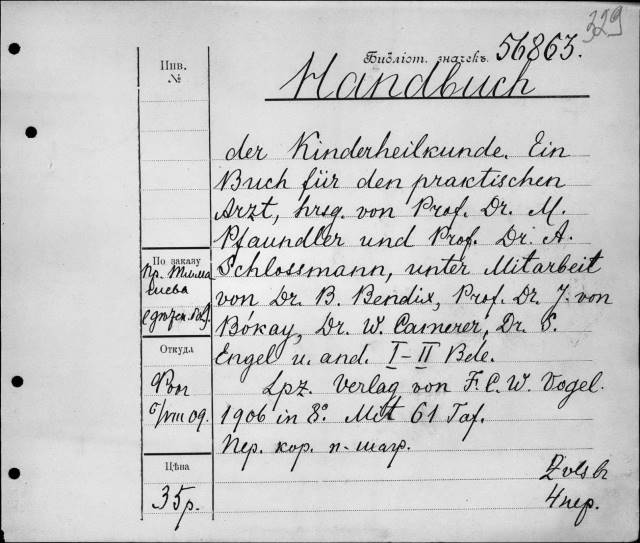 329
Библіот. значекъ. 56863.
Инв.
№
Handbuch
der Kinderheilkunde. Ein
Buch für den praktischen
Arzt, hrsg. von Prof. Dr. M.
Pfaundler und Prof. Dr. A.
Schlossmann, unter Mitarbeit
von Dr. B. Bendix, Prof. Dr. J. von
Bókay, Dr. W. Camerer, Dr. S.
Engel u. and. I–II Bde.
Lpz. Verlag von F. C. W. Vogel.
1906 in 8º. Mit 61 Taf.
Пер. кор. п-шагр.
2 vls
4 пер.
По заказу
пр.
Откуда
6/VIII 09.
Цѣна
35 р.